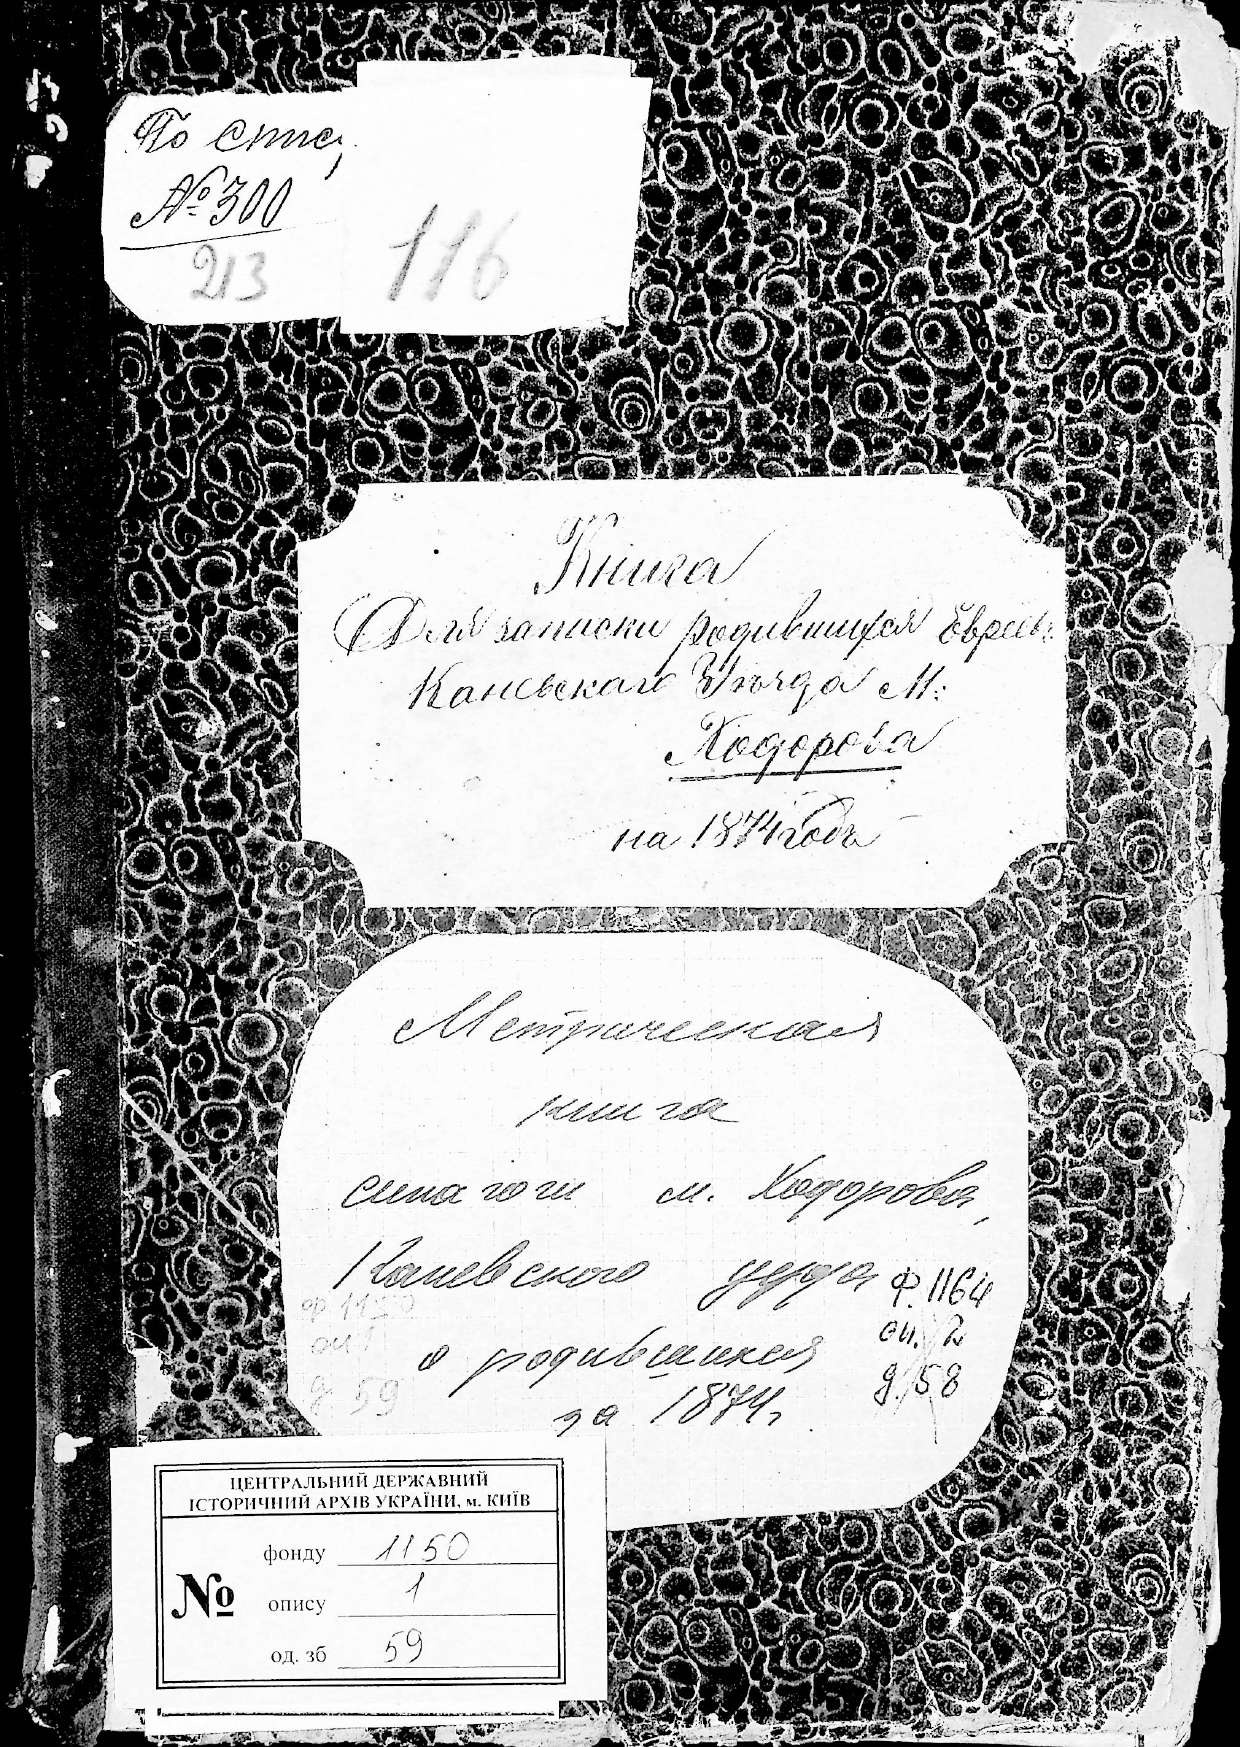 По спис,
№ 300
213
116
Книга
Для записки родившихся Евреевъ
Каневскаго Уѣзда М:
Ходорова
на 1874 годъ
Метрическая
книга
синагоги м. Ходорова,
Каневского уезда
о родившихся
за 1874г
ф. 1164
оп. 2
д. 58
ф. 1150
оп 1
д 59
ЦЕНТРАЛЬНИЙ ДЕРЖАВНИЙ
ІСТОРИЧНИЙ АРХІВ УКРАЇНИ, м. КИЇВ
№
фонду 1150
опису 1
од. зб 59